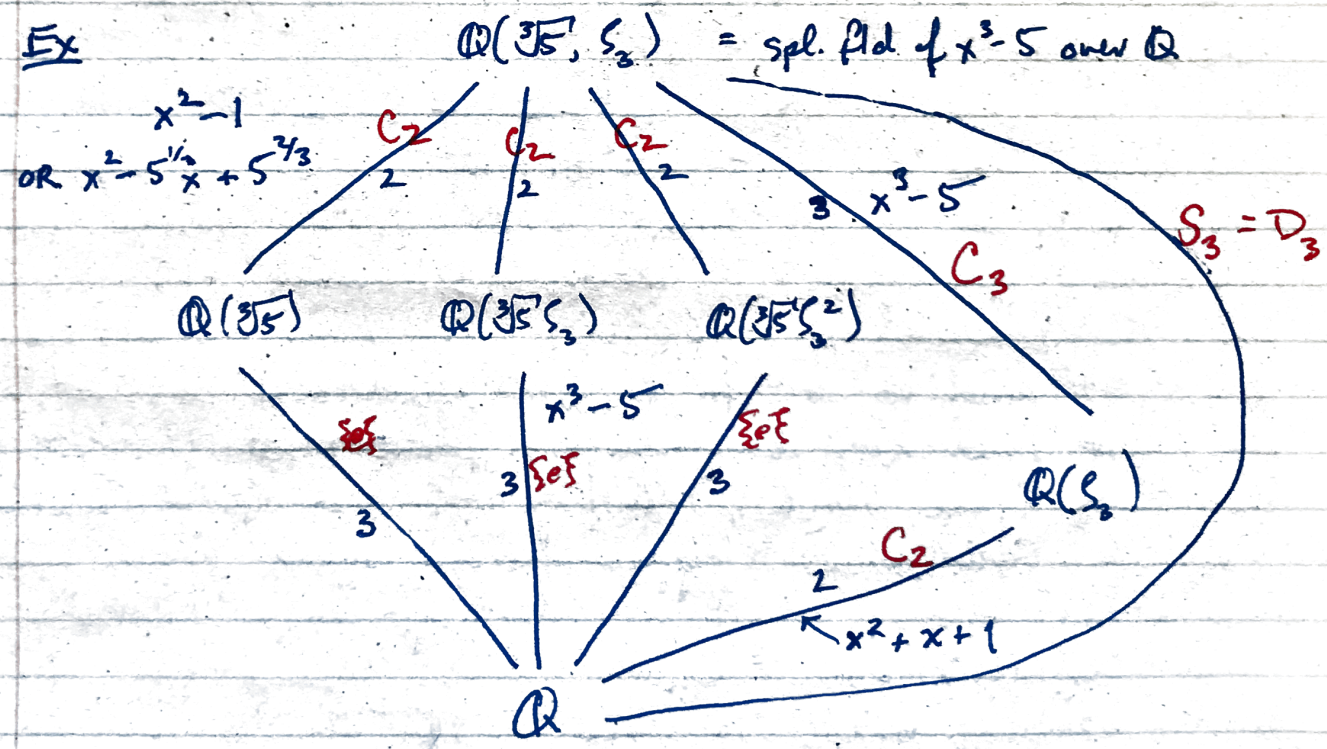 Ex
ℚ(∛5, ζ₃) = spl. fld. of x³-5 over ℚ
x²-1
OR x² - 5^{1/3}x + 5^{2/3}
C₂ C₂ C₂
2 2 2
3 x³-5
S₃ = D₃
C₃
ℚ(∛5) ℚ(∛5 ζ₃) ℚ(∛5 ζ₃²)
x³-5
{e} {e} {e}
3 3 3
ℚ(ζ₃)
C₂
2
x²+x+1
ℚ